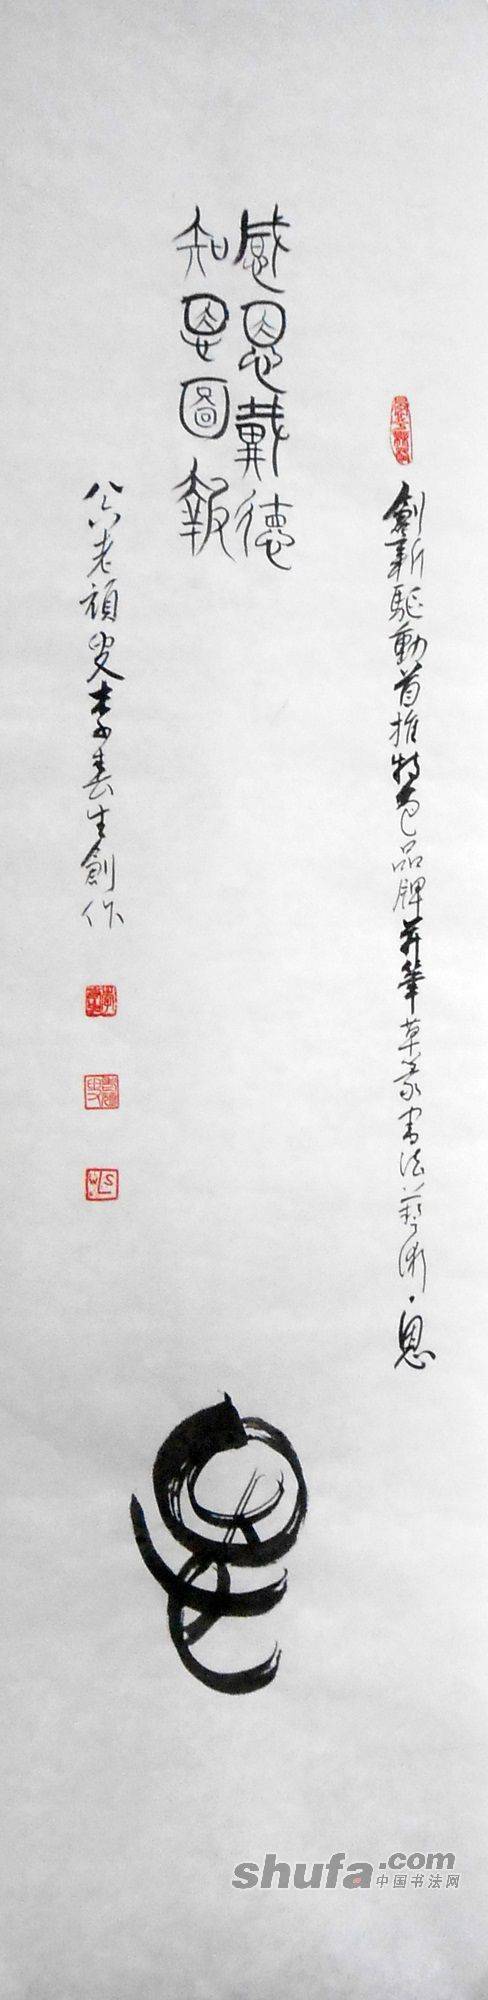 創新驅動首推特色品牌并筆草篆書法藝術·恩
感恩戴德
知恩圖報
老頑叟李春生創作
恩
shufa.com
中国书法网